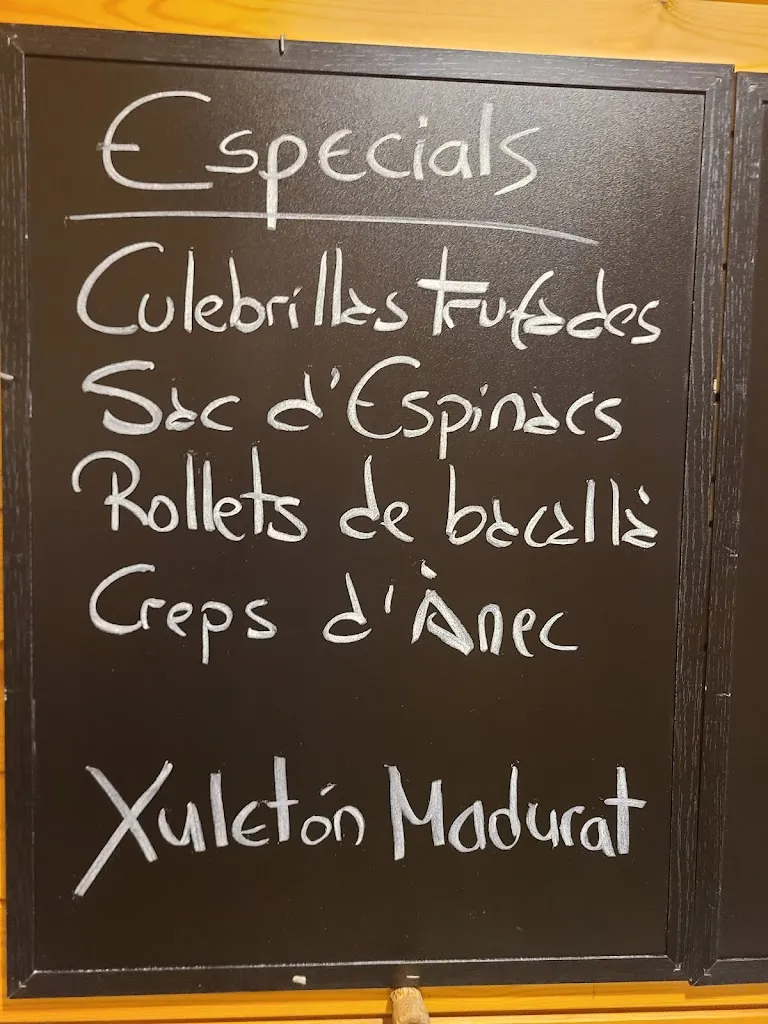 Especials
Culebrillas trufades
Sac d'Espinacs
Rollets de bacallà
Creps d'Ànec
Xuletón Madurat